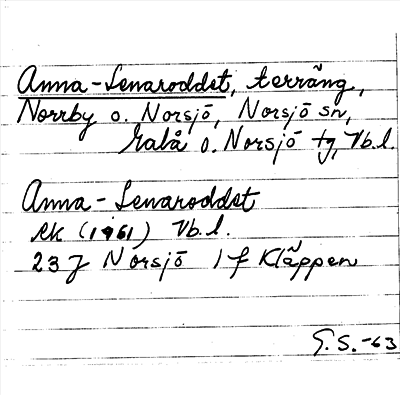 Anna-Lenaroddet, terräng,
Norrby o. Norsjö, Norsjö sn,
Malå o. Norsjö tg, Vb.l.
Anna-Lenaroddet
ek (1961) Vb.l.
23 J Norsjö 1 f Kläppen
G.S.-63